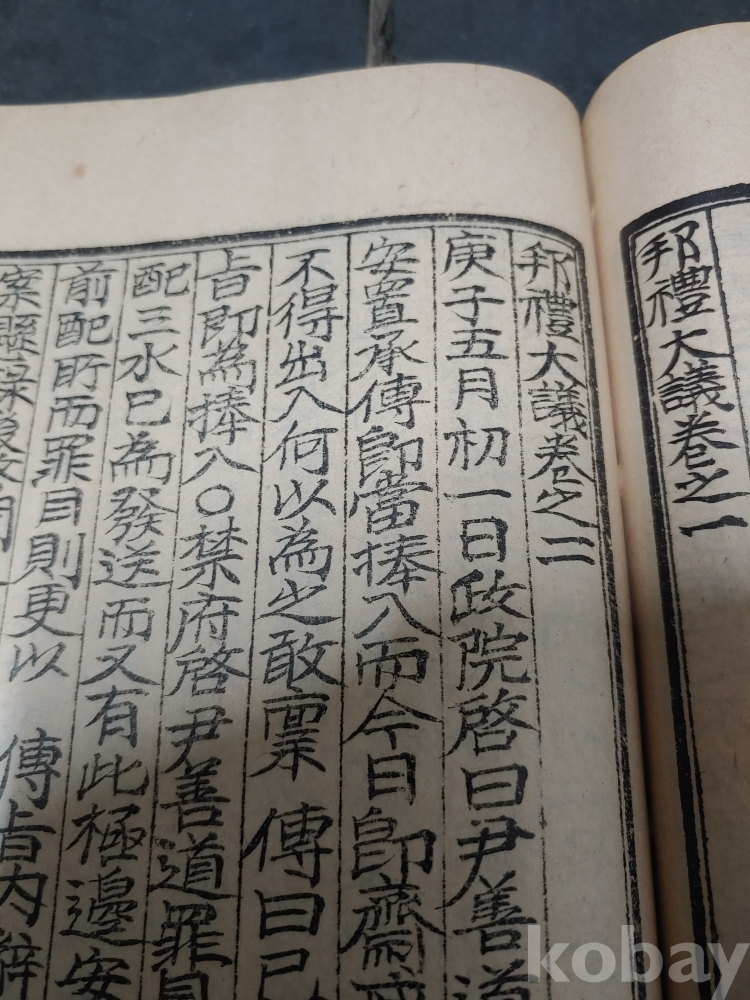 邦禮大議卷之一
邦禮大議卷之二
庚子五月初一日政院啓曰尹善道
安置承傳即當捧入而今日即齋戒
不得出入何以為之敢禀 傳曰已
旨即為捧入○禁府啓尹善道罪目
配三水已為發送而又有此極邊安
前配所而罪目則更以 傳旨內辭
案懸
kobay